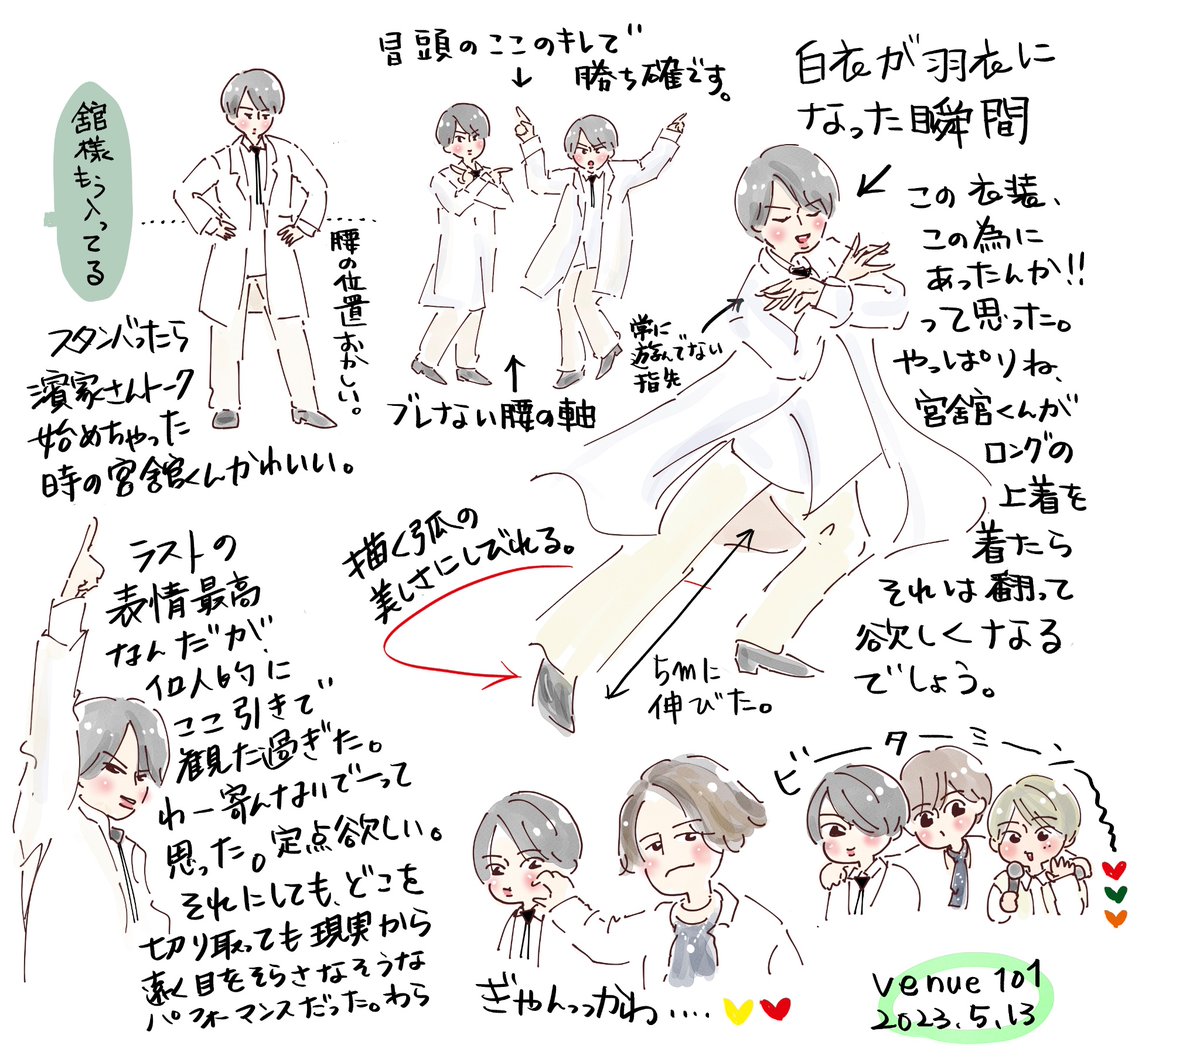 舘様もう入ってる
スタンバったら
濱家さんトーク
始めちゃった
時の宮舘くんかわいい。
腰の位置おかしい。
冒頭のここのキレで
勝ち確です。
ブレない腰の軸
白衣が羽衣に
なった瞬間
この衣装、
この為に
あったんか!!
って思った。
やっぱりね、
宮舘くんが
ロングの
上着を
着たら
それは翻って
欲しくなる
でしょう。
常に
遊んでない
指先
描く弧の
美しさにしびれる。
5mに
伸びた。
ラストの
表情最高
なんだが、
個人的に
ここ引きで
観た過ぎた。
わー寄んないでーって
思った。定点欲しい。
それにしても、どこを
切り取っても現実から
遠く目をそらさなそうな
パフォーマンスだった。わら
ぎゃんっっかわ....
ビーターミーン
venue 101
2023.5.13